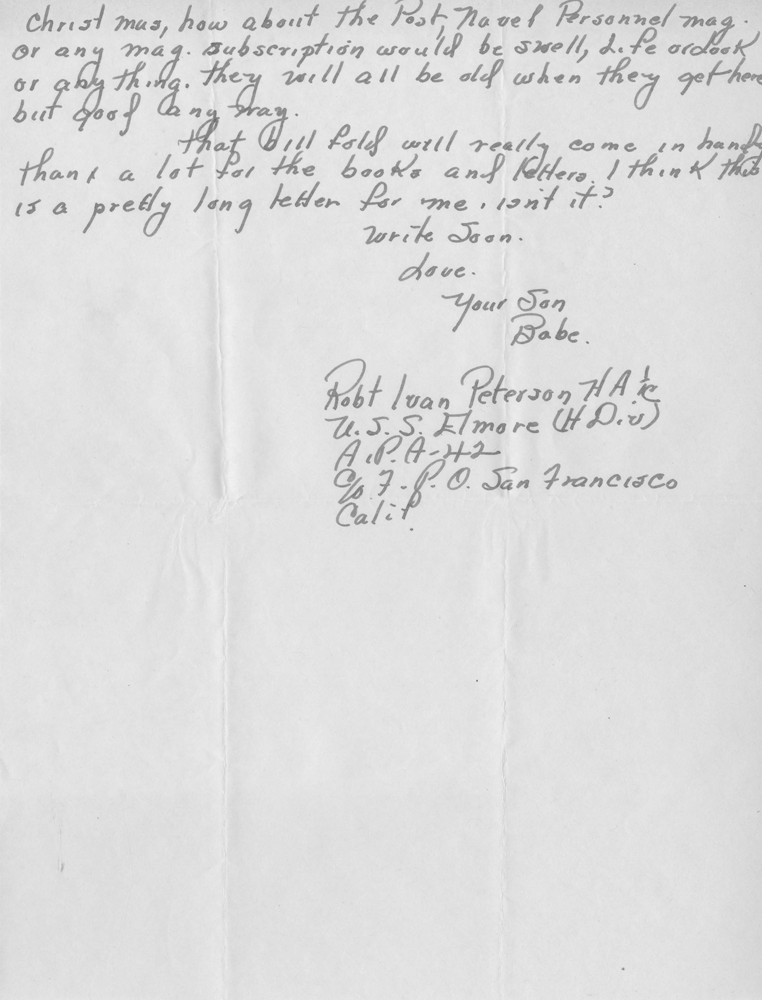 Christ mas, how about the Post, Navel Personnel mag.
or any mag. subscription would be swell, Life or Look
or any thing. they will all be old when they get here
but good any way.
that bill fold will really come in handy
thanx a lot for the books and letters. I think this
is a pretty long letter for me, isn't it?
Write Soon.
Love.
Your Son
Babe.
Robt Ivan Peterson HA 1/c
U.S.S. Elmore (H Div)
A.P.A-42
C/o F.P.O. San Francisco
Calif.